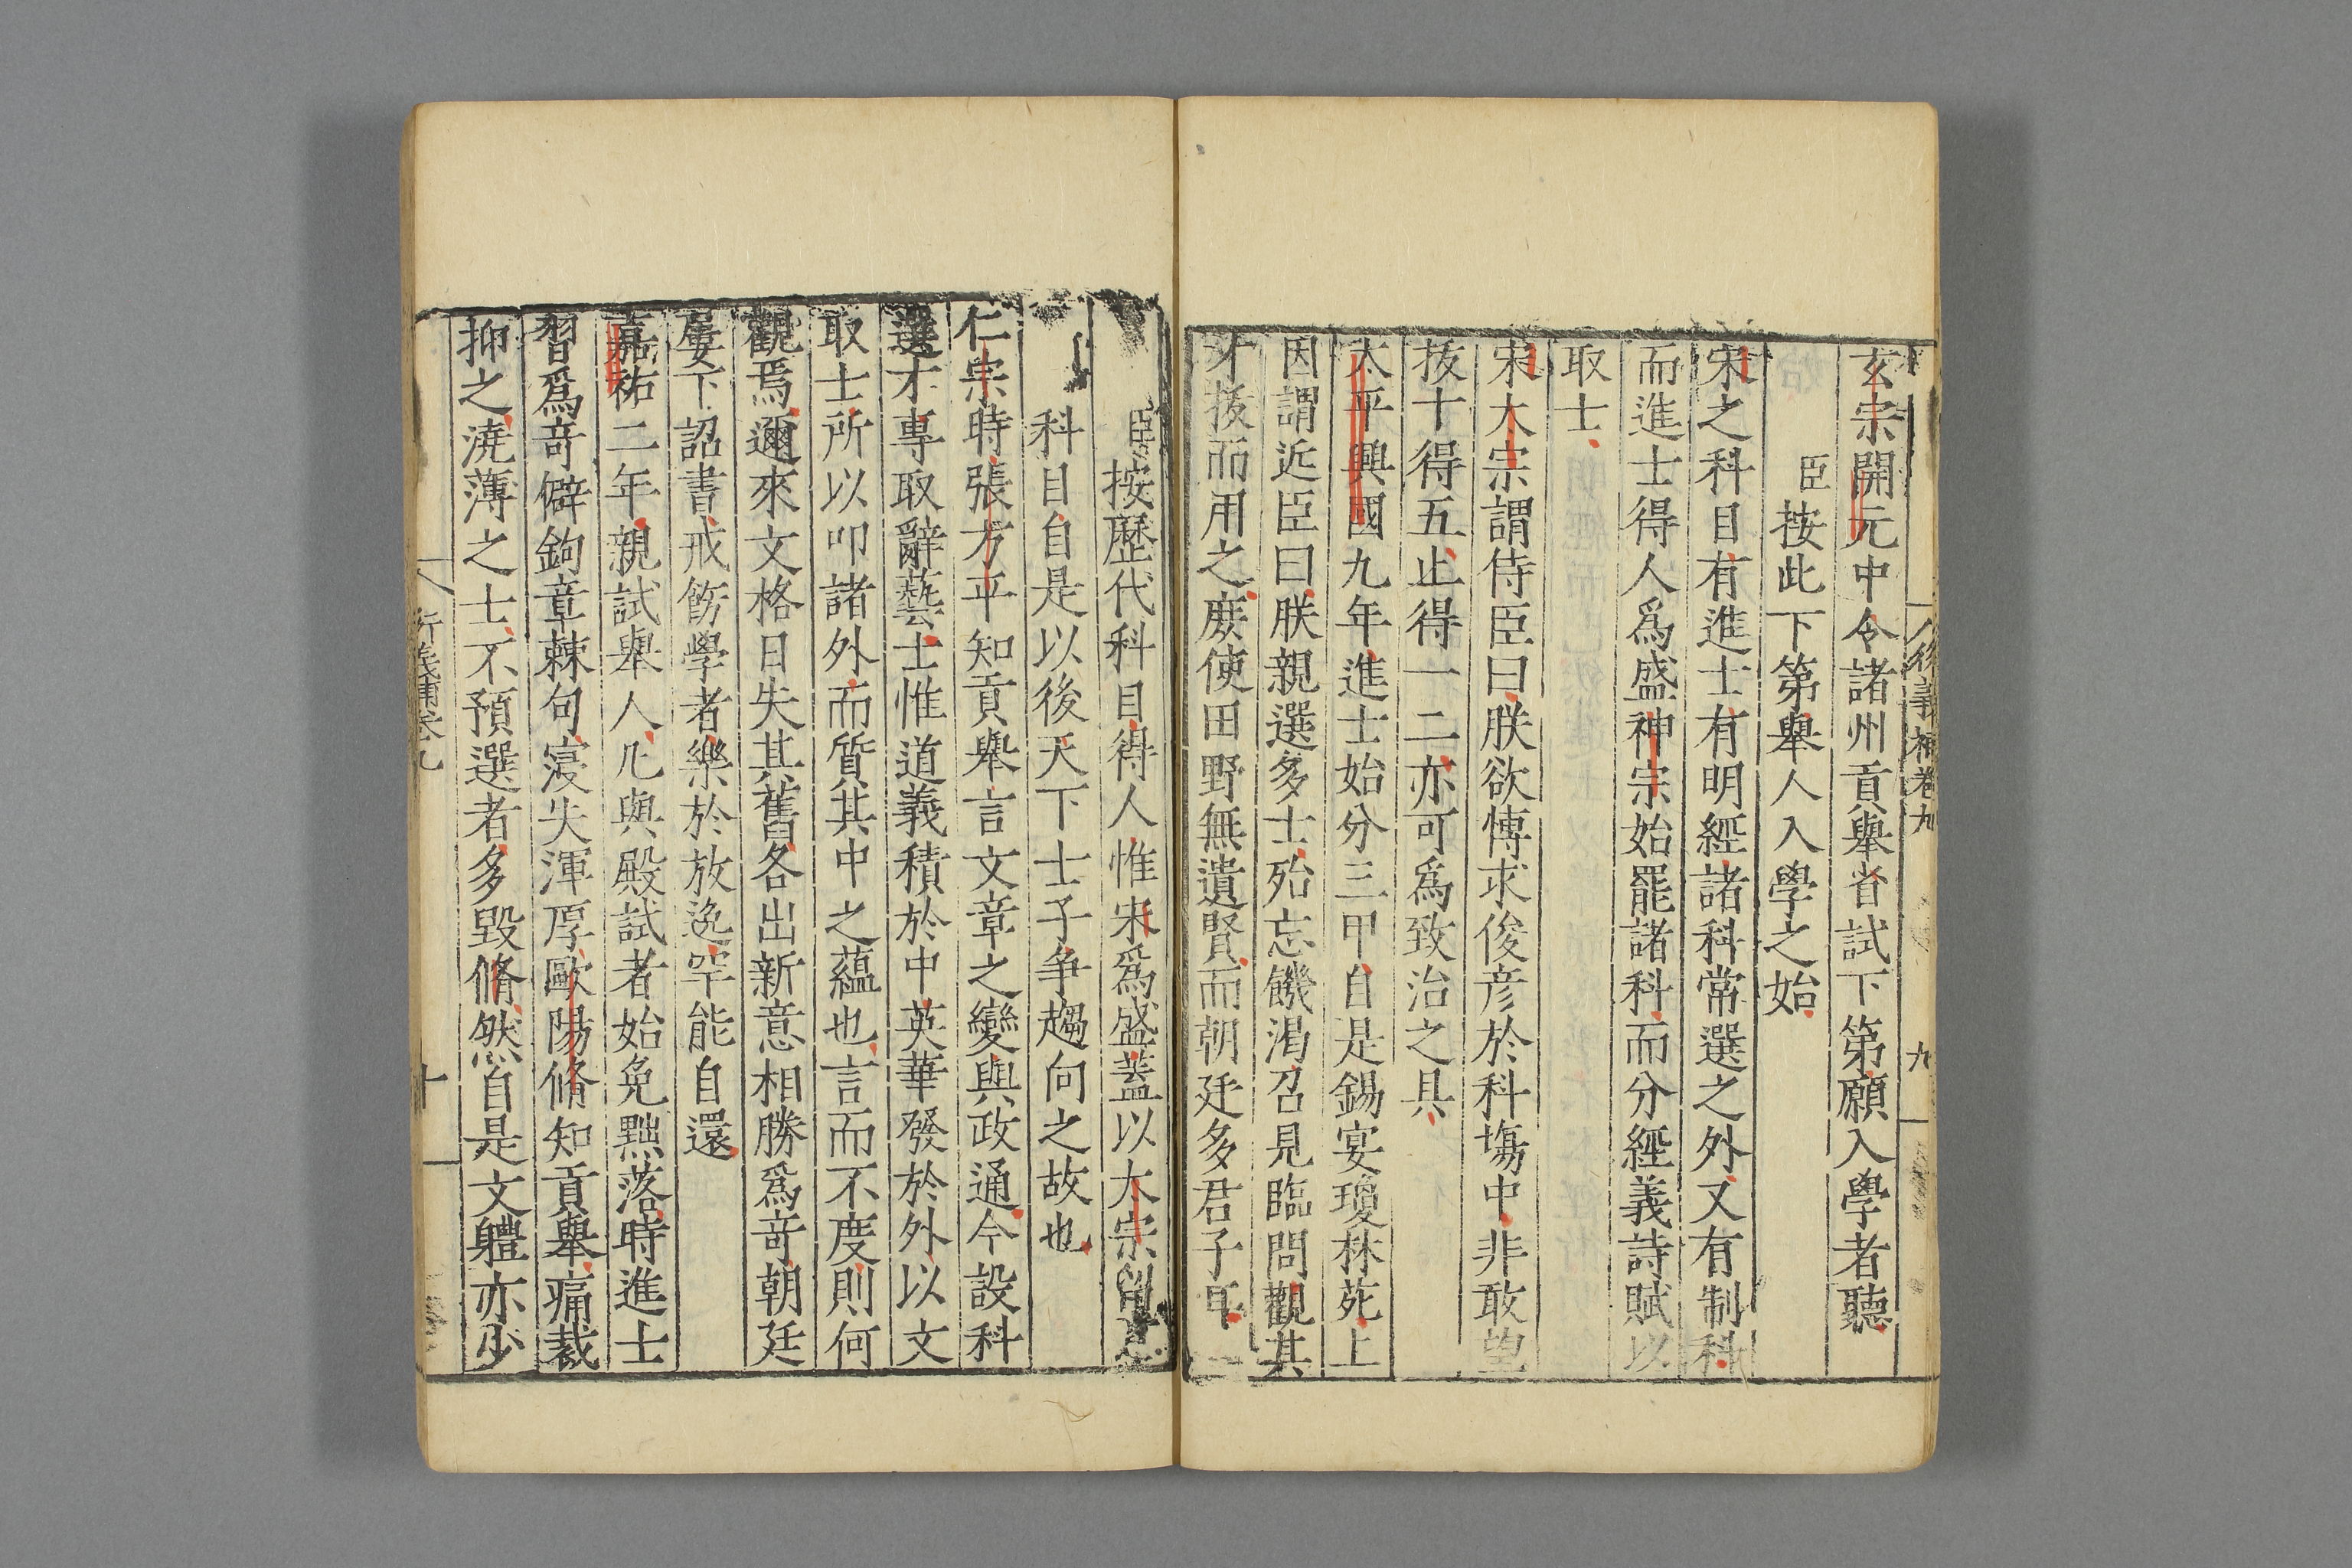 衍義補卷九
九
玄宗開元中令諸州貢舉省試下第願入學者聽
臣按此下第舉人入學之始
宋之科目有進士有明經諸科常選之外又有制科
而進士得人爲盛神宗始罷諸科而分經義詩賦以
取士
宋太宗謂侍臣曰朕欲慱求俊彦於科塲中非敢望
拔十得五止得一二亦可爲致治之具
太平興國九年進士始分三甲自是錫宴瓊林苑上
因謂近臣曰朕親選多士殆忘饑渴召見臨問觀其
才拔而用之庶使田野無遺賢而朝廷多君子耳
臣按歷代科目得人惟宋爲盛蓋以太宗留意
科目自是以後天下士子争趨向之故也
仁宗時張方平知貢舉言文章之變與政通今設科
選才專取辭藝士惟道義積於中英華發於外以文
取士所以叩諸外而質其中之蘊也言而不度則何
觀焉邇來文格日失其舊各出新意相勝爲竒朝廷
屢下詔書戒飭學者樂於放逸罕能自還
嘉祐二年親試舉人凡與殿試者始免黜落時進士
習爲竒僻鉤章棘句寖失渾厚歐陽脩知貢舉痛裁
抑之澆薄之士不預選者多毁脩然自是文軆亦少
衍義補卷九
十